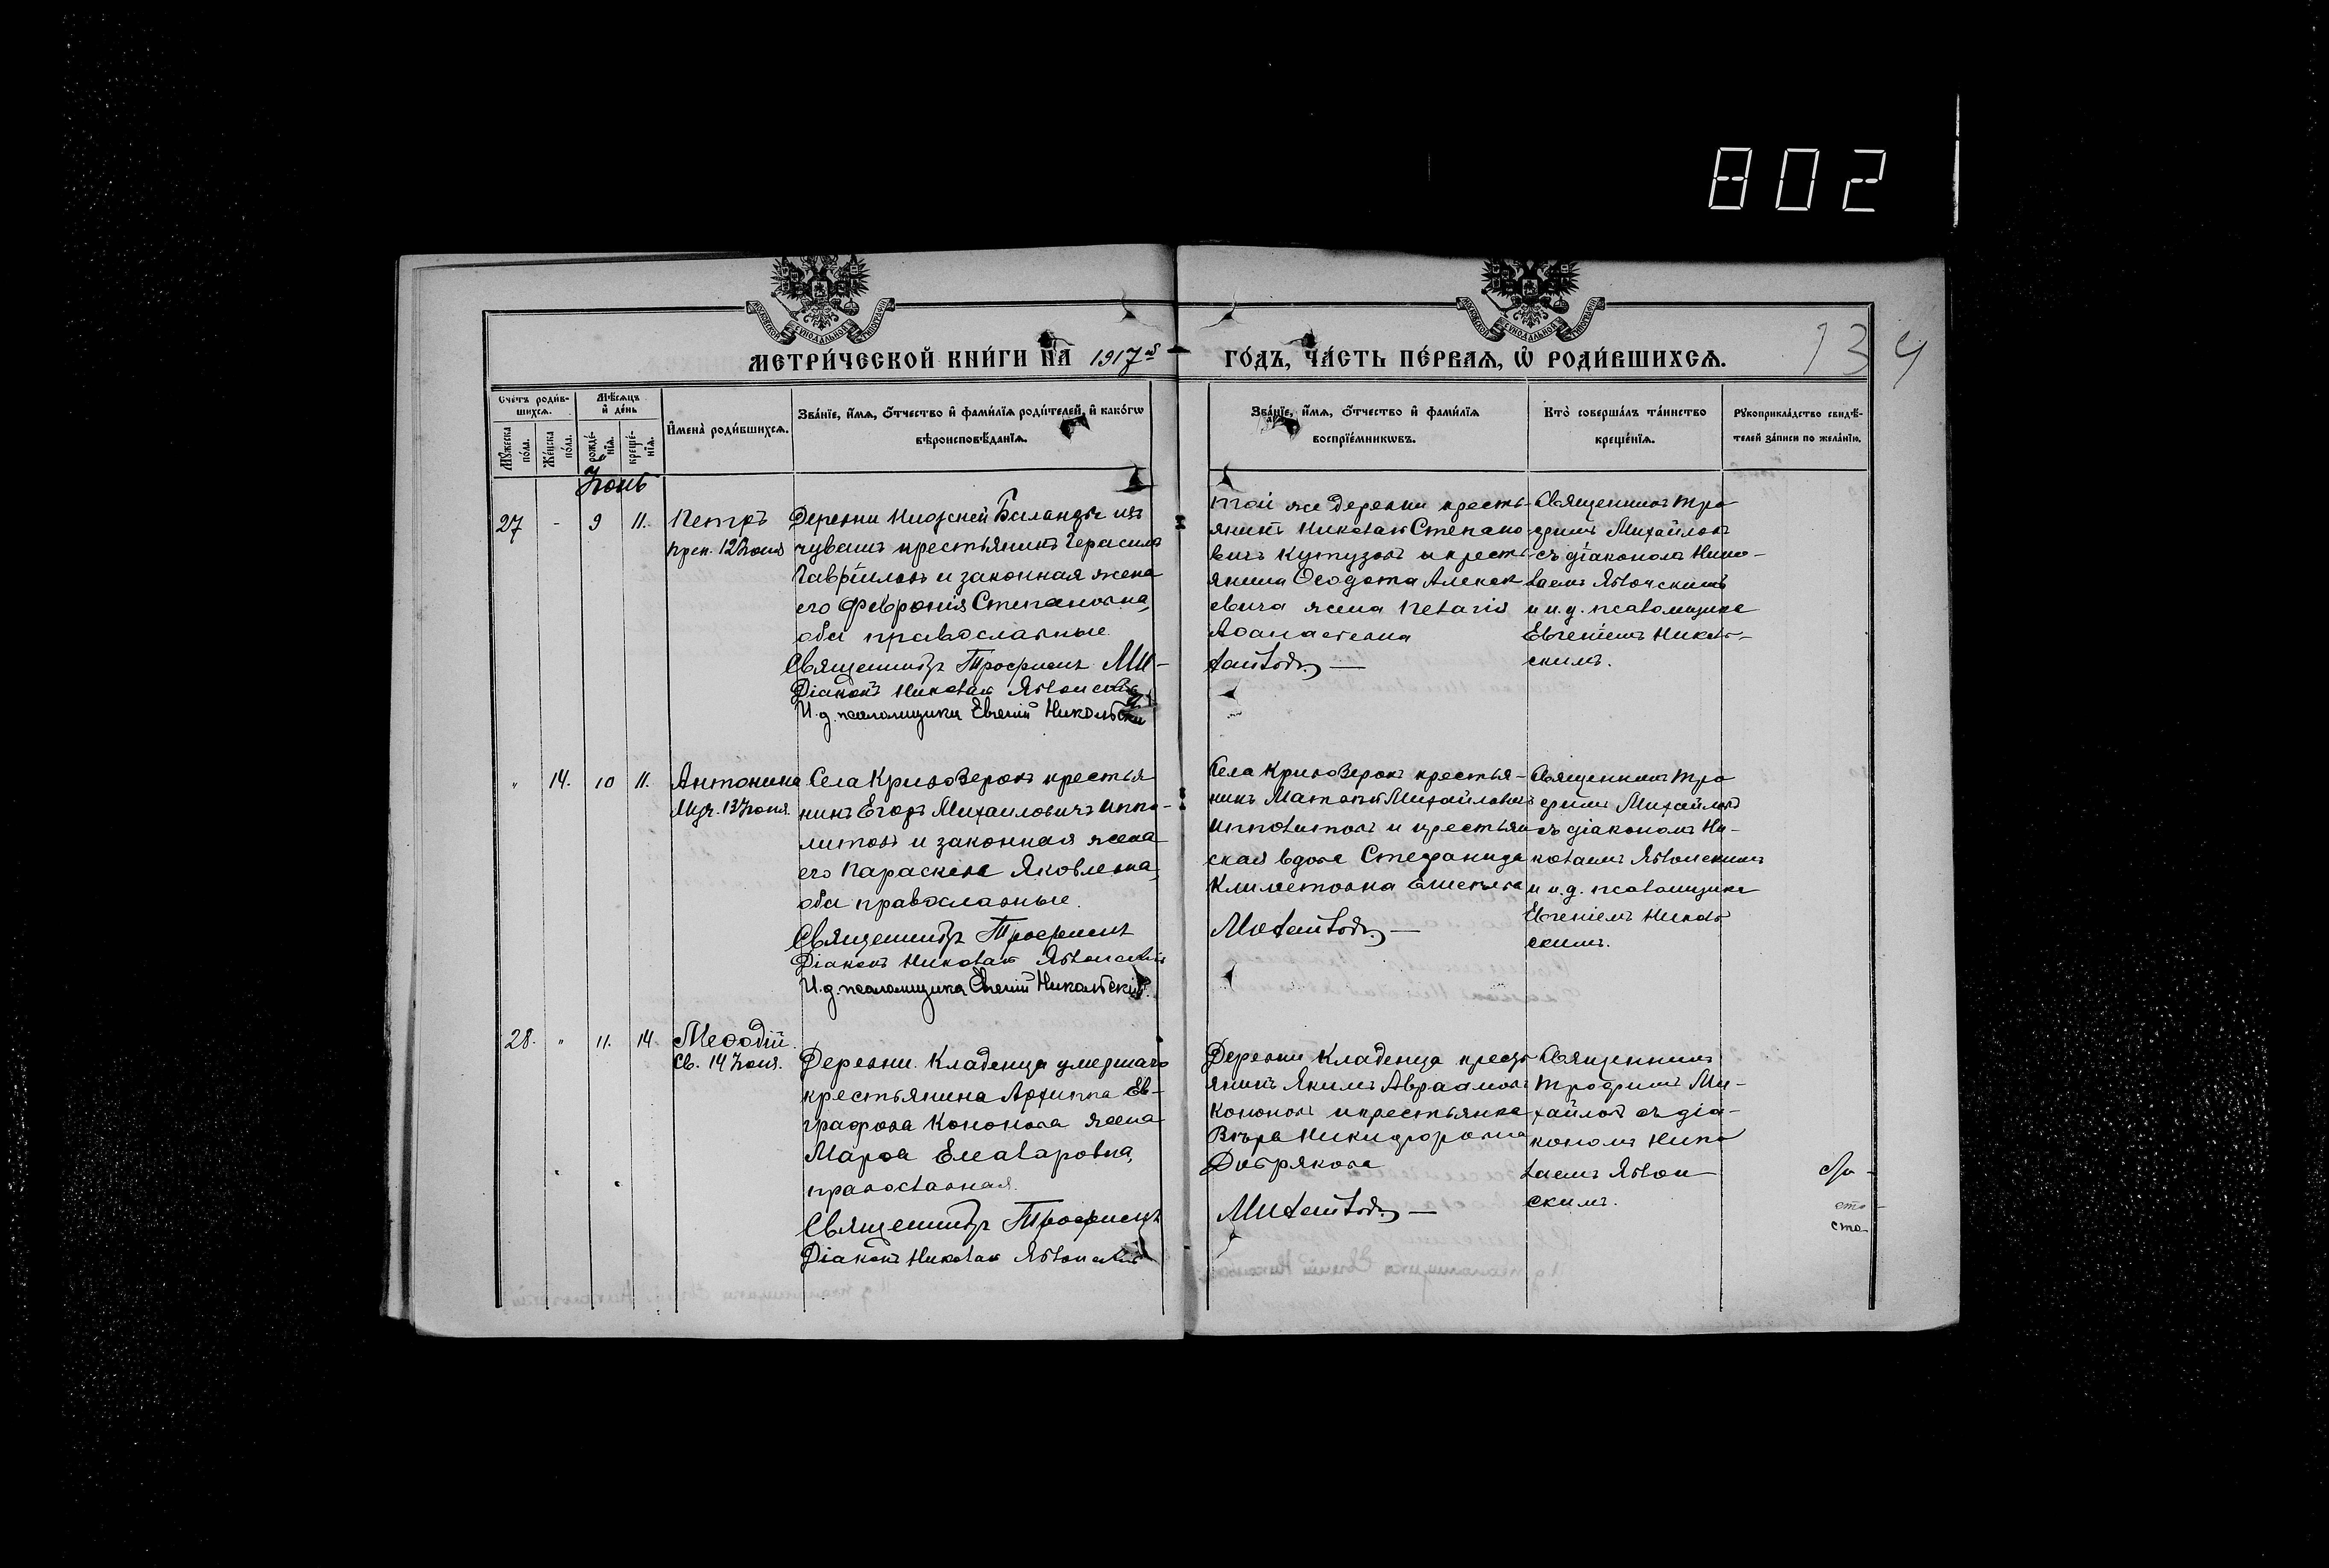 802
МЕТРИ́ЧЕСКОЙ КНИ́ГИ НА 1917й ГО́ДЪ, ЧА́СТЬ ПЕ́РВАѦ, Ѡ҆ РОДИ́ВШИХСѦ.
134
Сче́тъ роди́в-
шихсѧ.
Мѣ́сѧцъ
и҆ де́нь
Мꙋ́жеска
по́ла.
Же́нска
по́ла.
рожде́-
нїѧ.
креще́-
нїѧ.
И҆мена̀ роди́вшихсѧ.
Зва́нїе, и҆́мѧ, ѻ҆́тчество и҆ фами́лїѧ роди́телей, и҆ како́гѡ
вѣроисповѣ́данїѧ.
Зва́нїе, и҆́мѧ, ѻ҆́тчество и҆ фами́лїѧ
воспрїе́мникѡвъ.
Кто̀ соверша́лъ та́инство
креще́нїѧ.
Рꙋкоприкла́дство свидѣ́-
телей за́писи по жела́нїю.
Іюнь
27 - 9 11.
Петръ
преп. 12 Іюня
Деревни Нижней Баланды из
чувашъ крестьянинъ Герасимъ
Гавріиловъ и законная жена
его Февронія Степановна,
оба православные
Священникъ Трофимъ Ми-
Діаконъ Николай Яблонскій
И.д. псаломщика Евгеній Никольскій
той же деревни кресть-
янинъ Николай Степано-
вичъ Кутузовъ и кресть-
янина Ѳеодота Алексе-
евича жена Пелагія
Аѳанасіевна
хайловъ
Священникъ Тро-
фимъ Михайловъ
съ діакономъ Нико-
лаемъ Яблонскимъ
и и.д. псаломщика
Евгеніемъ Николь-
скимъ.
" 14. 10 11.
Антонина
Муч. 13 Іюня.
Села Кривоозерокъ крестья
нинъ Егоръ Михайловичъ Иппо-
литовъ и законная жена
его Параскева Яковлевна,
оба православные.
Священникъ Трофимъ
Діаконъ Николай Яблонскій
И.д. псаломщика Евгеній Никольскій.
Села Кривоозерокъ крестья-
нинъ Матвѣй Михайловичъ
Ипполитовъ и крестьян
ская вдова Стефанида
Климентовна
Михайловъ
Священникъ Тро
фимъ Михайловъ
съ діакономъ Ни-
колаемъ Яблонскимъ
и и.д. псаломщика
Евгеніемъ Николь
скимъ.
28. " 11. 14
Меѳодій.
Св. 14 Іюня.
Деревни Кладенца умершаго
крестьянина Архиппа Ев-
графова Кононова жена
Марѳа Елеазаровна,
православная.
Священникъ Трофимъ
Діаконъ Николай Яблонскій
Деревни Кладенца кресть
янинъ Якимъ Авраамовъ
Кононовъ и крестьянка
Вѣра Никифорова
Добрякова
Михайловъ
Священникъ
Трофимъ Ми-
хайловъ съ діа-
кономъ Нико
лаемъ Яблон
скимъ.